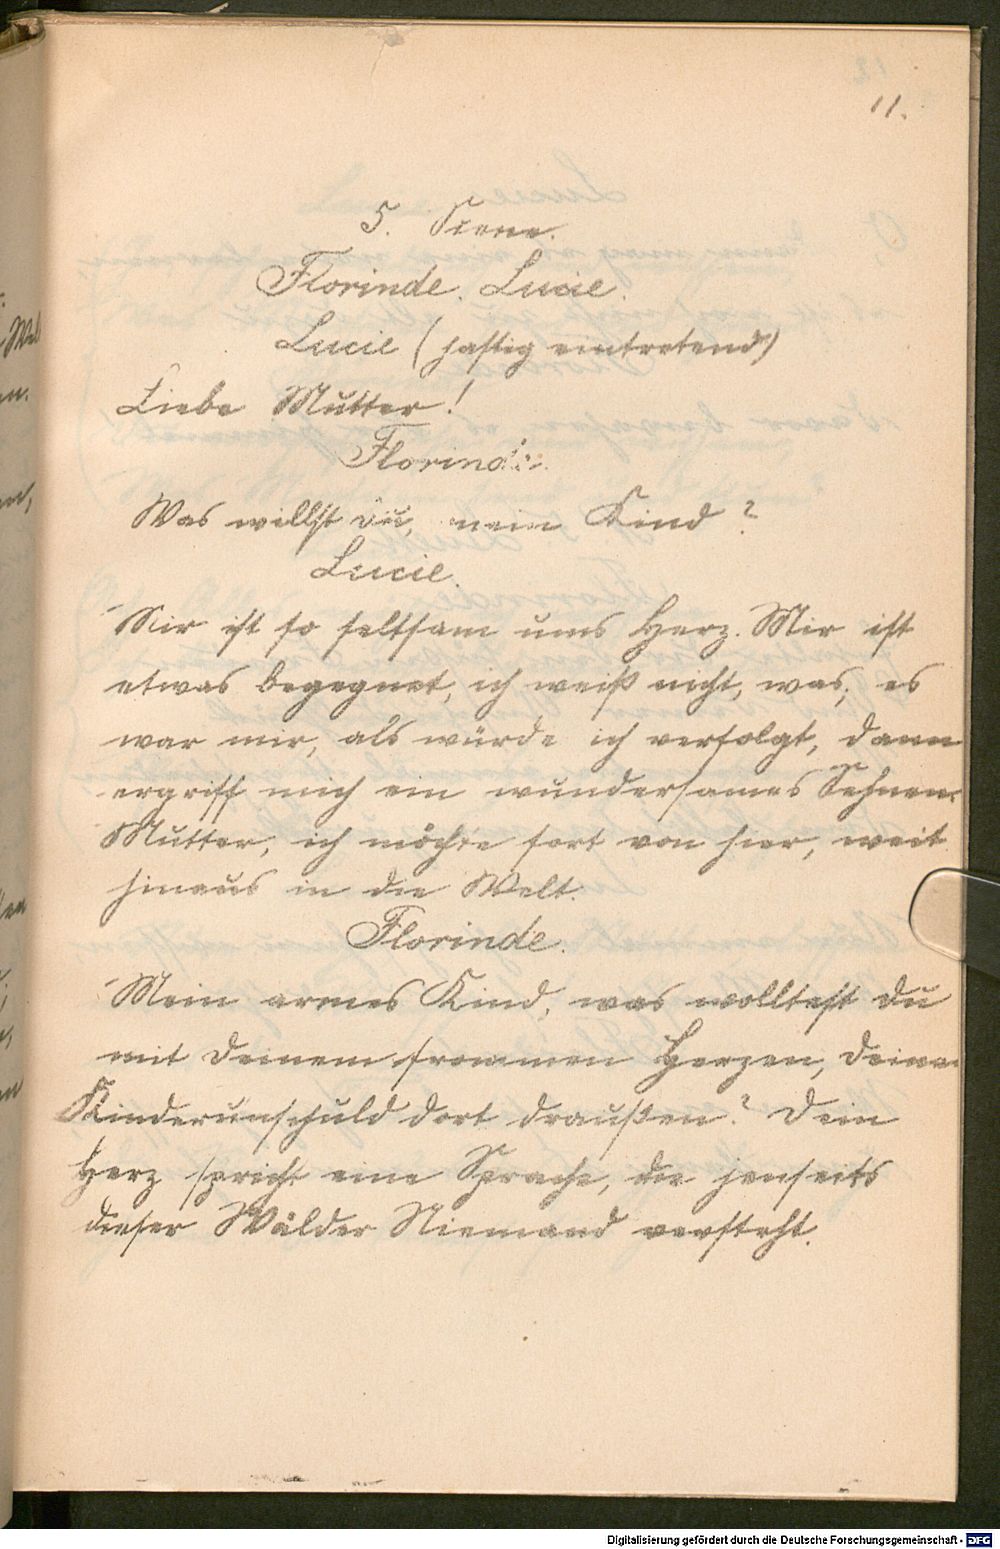 11.
5. Scene.
Florinde. Lucie.
Lucie (hastig eintretend)
Liebe Mutter!
Florinde.
Was willst du, mein Kind?
Lucie.
Mir ist so seltsam ums Herz. Mir ist
etwas begegnet, ich weiß nicht, was; es
war mir, als würde ich verfolgt, dann
ergriff mich ein wundersames Sehnen.
Mutter, ich möchte fort von hier, weit
hinaus in die Welt.
Florinde.
Mein armes Kind, was wolltest du
mit deinem frommen Herzen, deiner
Kinderunschuld dort draußen? Dein
Herz spricht eine Sprache, die jenseits
dieser Wälder Niemand versteht.
Digitalisierung gefördert durch die Deutsche Forschungsgemeinschaft - DFG